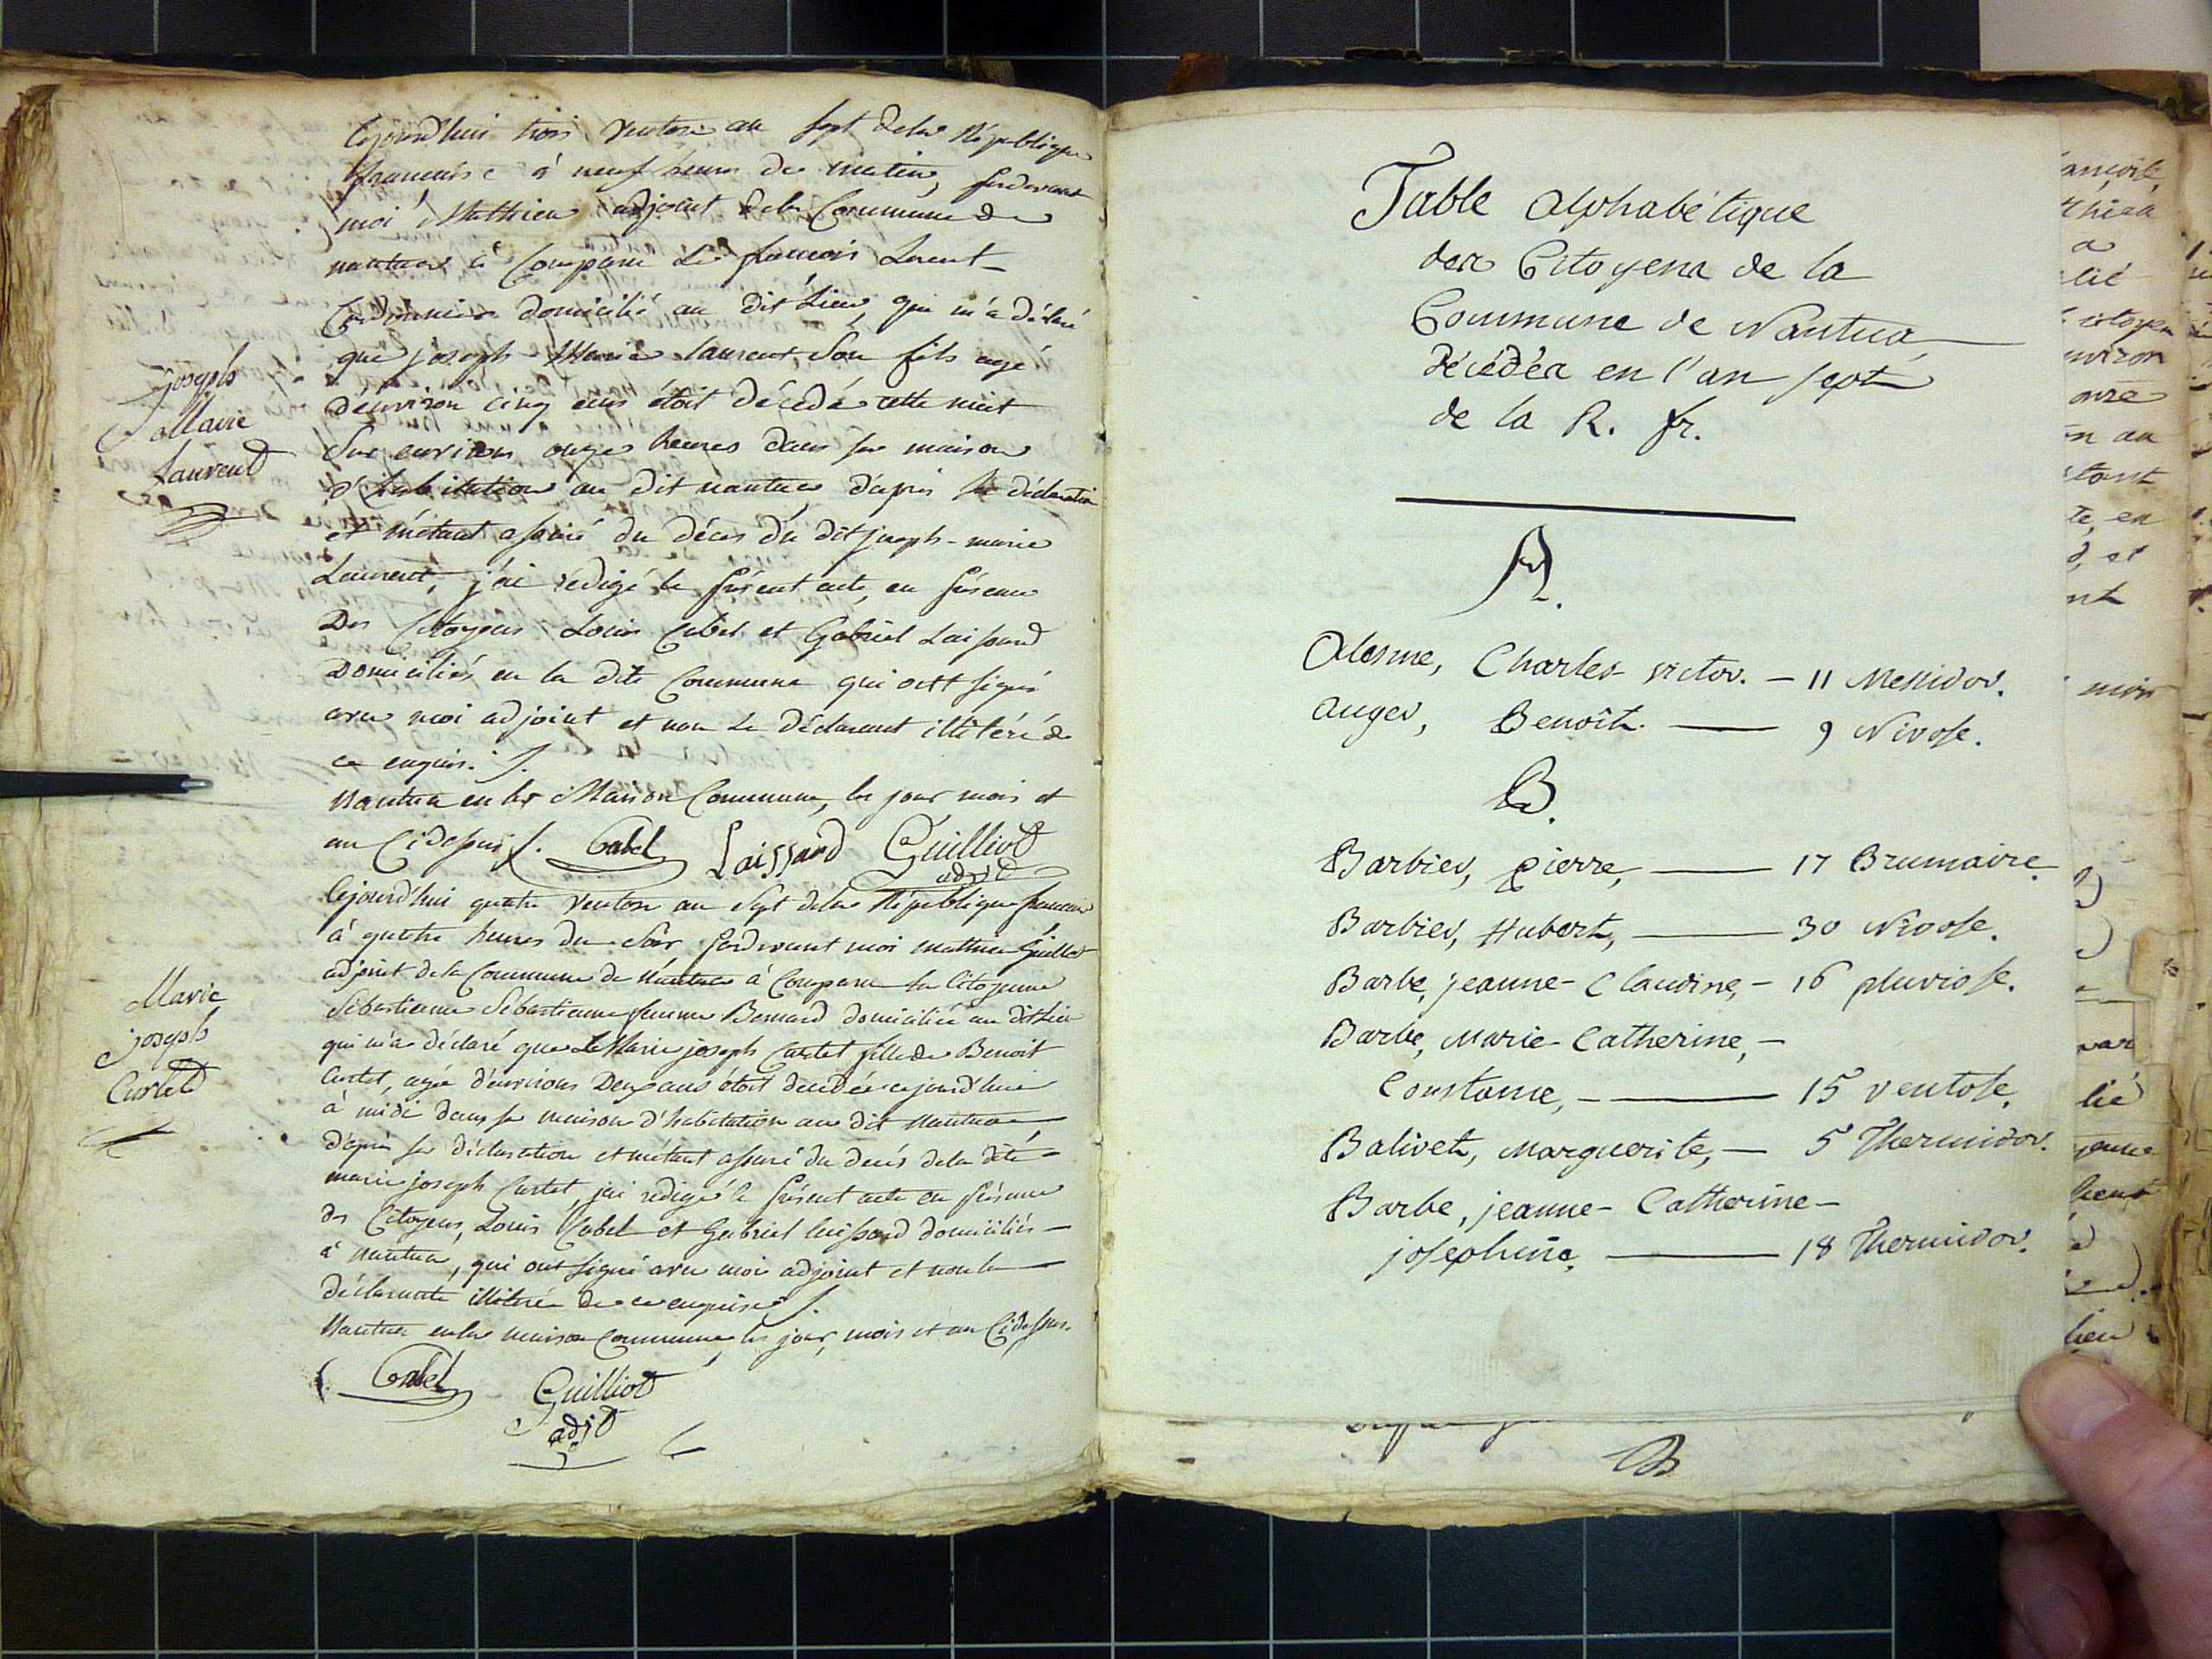 Cejourd'hui trois ventose an sept de la République
francaise à neuf heures du matin, pardevant
moi Mathieu adjoint de la Commune de
nantua à Comparu Le francois Laurent
Cordonnier domicilié au dit Lieu, qui m'a déclaré
que joseph Marie laurent Son fils agé
d'énviron cinq ans étoit décédé cette nuit
Sur environ onze heures dans sa maison
d'habitation au dit nantua d'apres sa déclaration
et m'étant assuré du décès du dit joseph-marie
Laurent, j'ai rédigé le présent acte, en présence
Des Citoyens Louis Cabet et Gabriel Laissard
Domiciliés en la dite Commune qui ont signé
avec moi adjoint et non Le déclarant illitéré de
ce enquis.
Nantua en la Maison Commune, les jour mois et
an Cidessus. Cabet Laissard Guilliot
adjt
joseph
Marie
Laurent
Cejourd'hui quatre ventose an Sept de la République francaise
à quatre heures du Soir pardevant moi mathieu Guilliot
adjoint de la Commune de Nantua à Comparu la Citoyenne
Sébastienne Sébastienne femme Bernard domiciliée au dit Lieu
qui m'a déclaré que Marie joseph Curtet fille de Benoit
Curtet, agée d'environs Deux ans étoit decédée cejourd'hui
à midi dans sa maison d'habitation au dit Nantua
d'apres sa déclaration et m'étant assuré du decés de la dite
marie joseph Curtet, jai rédigé le présent acte en présence
des Citoyens, Louis Cabet et Gabriel laissard domiciliés
à Nantua, qui ont signé avec moi adjoint et non la
déclarante illitérée de ce enquise.
Nantua en la maison Commune les jour, mois et an Cidessus.
Cabet Guilliot
adjt
Marie
joseph
Curtet
Table Alphabétique
des Citoyens de la
Commune de Nantua
décédés en l'an sept
de la R. fr.
A.
Alesme, Charles victor. — 11 Messidor.
Auger, Benoît. — 9 Nivose.
B.
Barbier, pierre, — 17 Brumaire.
Barbier, Hubert, — 30 Nivose.
Barbe, jeanne-Claudine, — 16 pluviose.
Barbe, Marie-Catherine, —
Constance, — 15 ventose.
Balivet, Marguerite, — 5 Thermidor.
Barbe, jeanne-Catherine-
josephine, — 18 Thermidor.
B